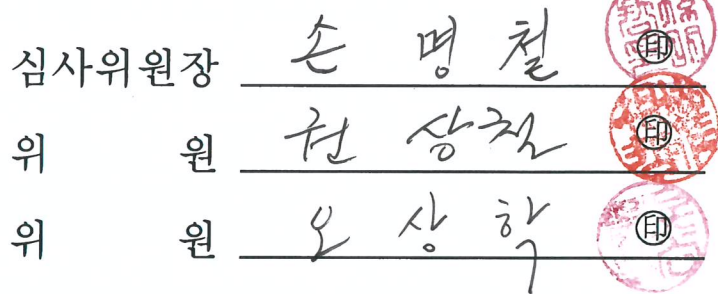 심사위원장 손 명 철 印
위 원 권 상 철 印
위 원 오 상 학 印